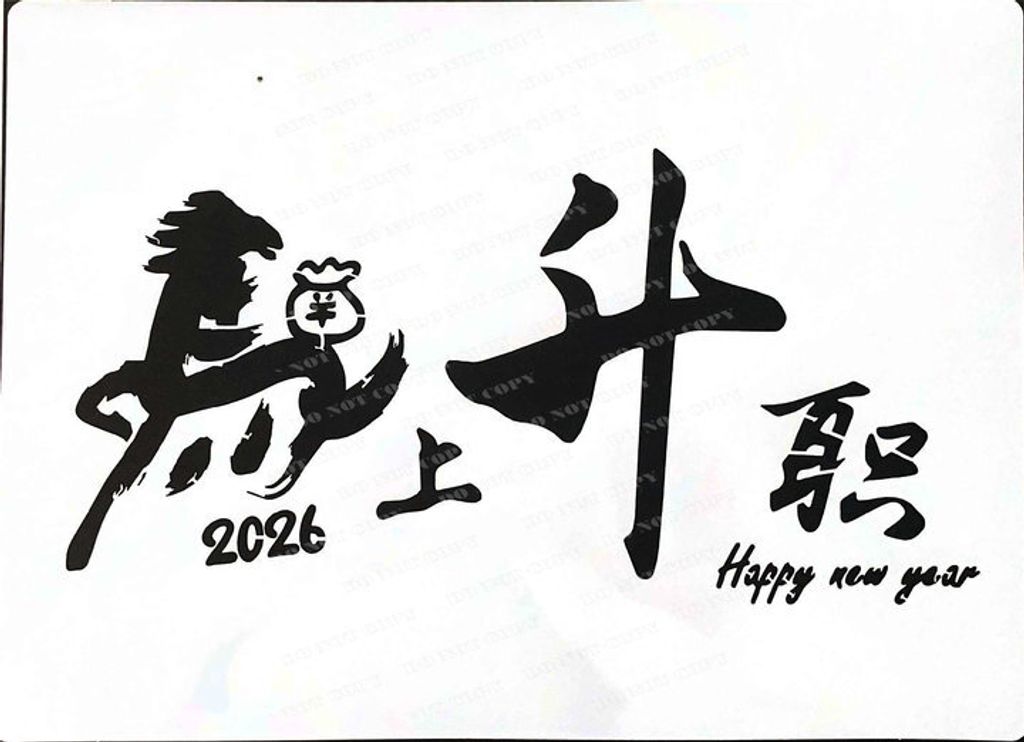 馬上升职
2026
Happy new year
DO NOT COPY